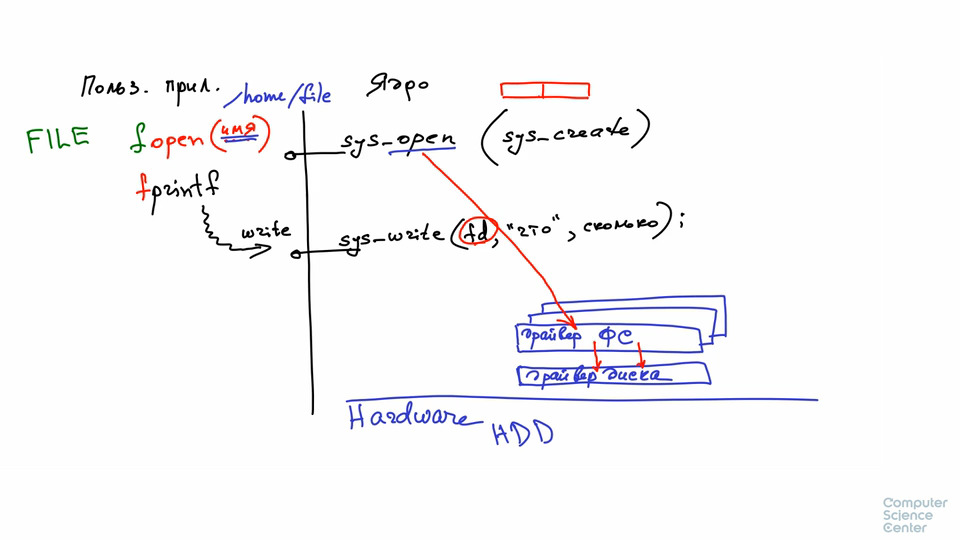 Польз. прил. /home/file Ядро
FILE fopen(имя) sys_open (sys_create)
fprintf
write sys_write(fd, "что", сколько);
драйвер ФС
драйвер диска
Hardware HDD
Computer
Science
Center